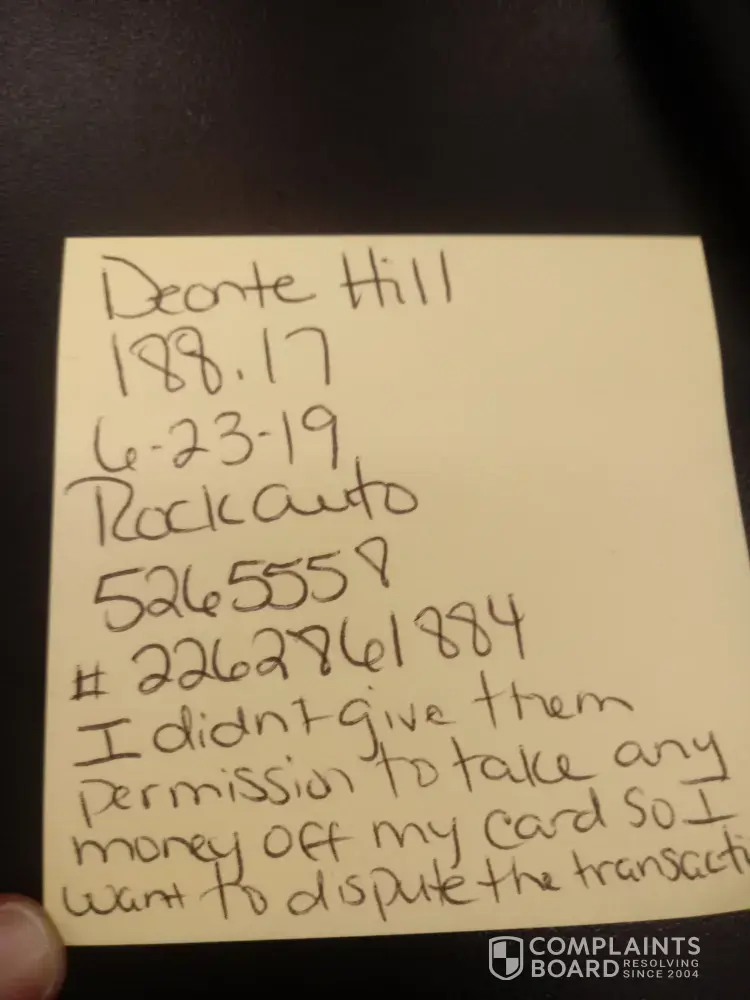 Deonte Hill
188.17
6-23-19
Rockauto
5265558
# 2262861884
I didn't give them
permission to take any
money off my card so I
want to dispute the transacti
COMPLAINTS
BOARD RESOLVING
SINCE 2004